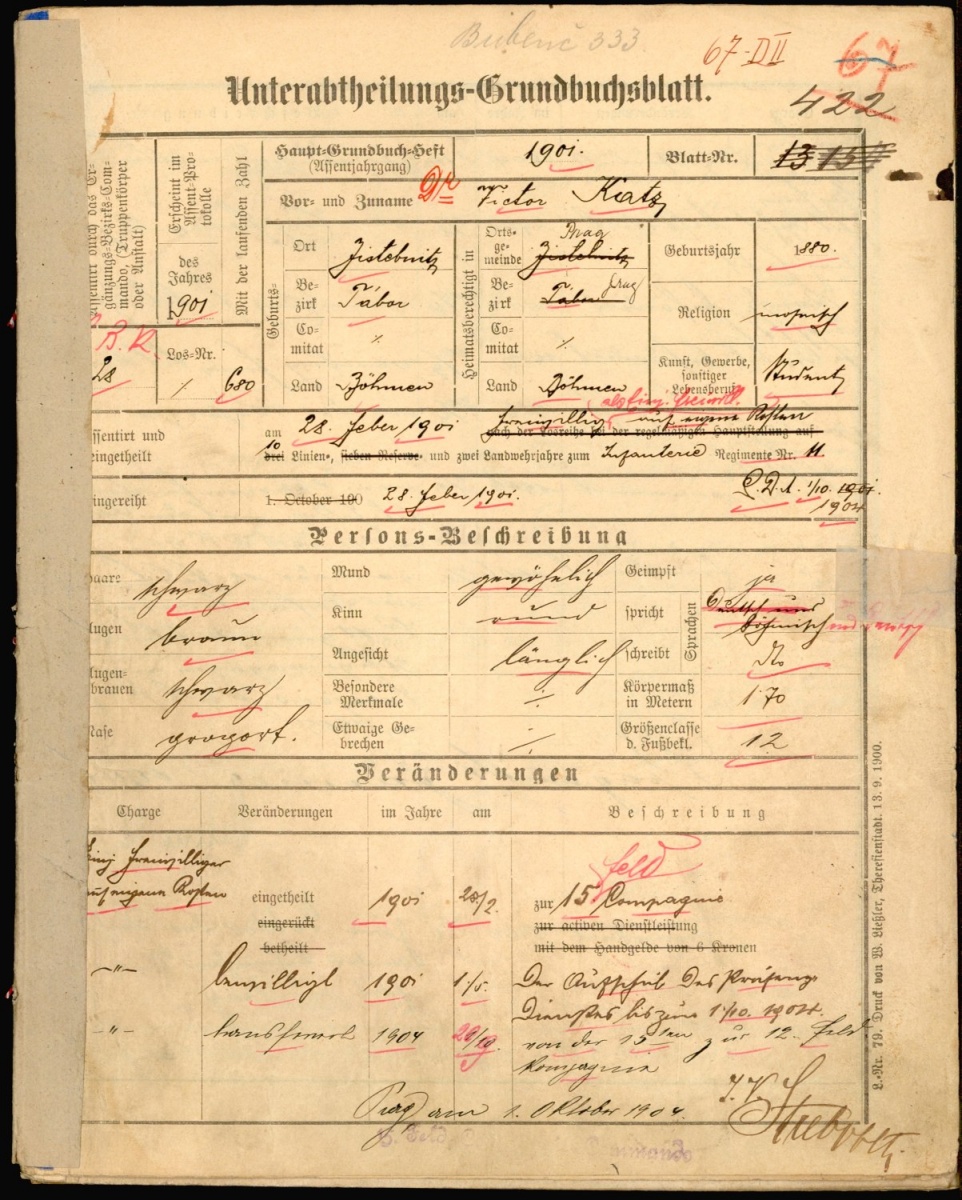 Bubenč 333
67-D II
67
422
Unterabtheilungs-Grundbuchsblatt.
Haupt-Grundbuch-Heft
(Assentjahrgang)
1901.
Blatt-Nr.
13 15
Vor- und Zuname
Dr
Victor Katz
gänzungs-Bezirks-Com-
mando, (Truppenkörper
oder Anstalt)
Erscheint im
Assent-Pro-
tokolle
des
Jahres
1901
Mit der laufenden Zahl
B. K.
28
Los-Nr.
⁒
680
Geburts-
Ort
Jistebnitz
Be-
zirk
Tábor
Co-
mitat
⁒
Land
Böhmen
Heimatsberechtigt in
Orts-
ge-
meinde
Prag
Jistebnitz
Be-
zirk
Tabor
Prag
Co-
mitat
⁒
Land
Böhmen
Geburtsjahr
1880.
Religion
mosaisch
Kunst, Gewerbe,
sonstiger
Lebensberuf
Student
ssentirt und
eingetheilt
am 28. Feber 1901 freiwillig auf eigene Kosten
als Einj. Freiwill.
nach der Losreihe bei der regelmäßigen Hauptstellung auf
10
drei Linien-, sieben Reserve- und zwei Landwehrjahre zum Infanterie Regimente Nr. 11.
ingereiht
1. October 190 28. Feber 1901.
P. D. A. 1/10. 1901.
1904
Persons-Beschreibung
haare
schwarz
Augen
braun
Augen-
brauen
schwarz
Nase
proport.
Mund
gewöhnlich
Kinn
rund
Angesicht
länglich
Besondere
Merkmale
⁒
Etwaige Ge-
brechen
⁒
Geimpft
ja
spricht
schreibt
Sprachen
Deutsch und
böhmisch
dto
Körpermaß
in Metern
1·70
Größenclasse
d. Fußbekl.
12
Veränderungen
Charge
Veränderungen
im Jahre
am
Beschreibung
Einj Freiwilliger
auf eigene Kosten
eingetheilt
eingerückt
betheilt
1901
28/2.
feld
zur 15 Compagnie
zur activen Dienstleistung
mit dem Handgelde von 6 Kronen
—"—
bewilligt
1901
1/5.
Der Aufschub des Präsenz-
Dienstes bis zum 1/10. 1904.
—"—
transferirt
1904
von der 15ten zur 12. Feld
kompagnie
Prag am 1. Oktober 1904.
I.V.
L.-Nr. 79. Druck von W. Ließler, Theresienstadt. 13. 9. 1900.